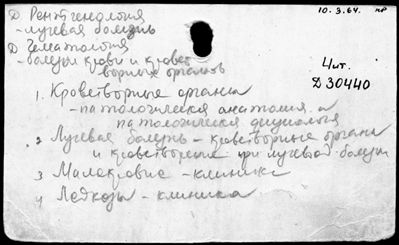 D Рентгенология
- лучевая болезнь
10.3.64.
D Гематология
- болезни крови и кровет
ворных органов
Чит.
D 30440
1. Кроветворные органы
- патологическая анатомия и
патологическая физиология
2 Лучевая болезнь - кроветворные органы
и кроветворение при лучевой болезни
3 Малокровие - клиника
4 Лейкозы - клиника